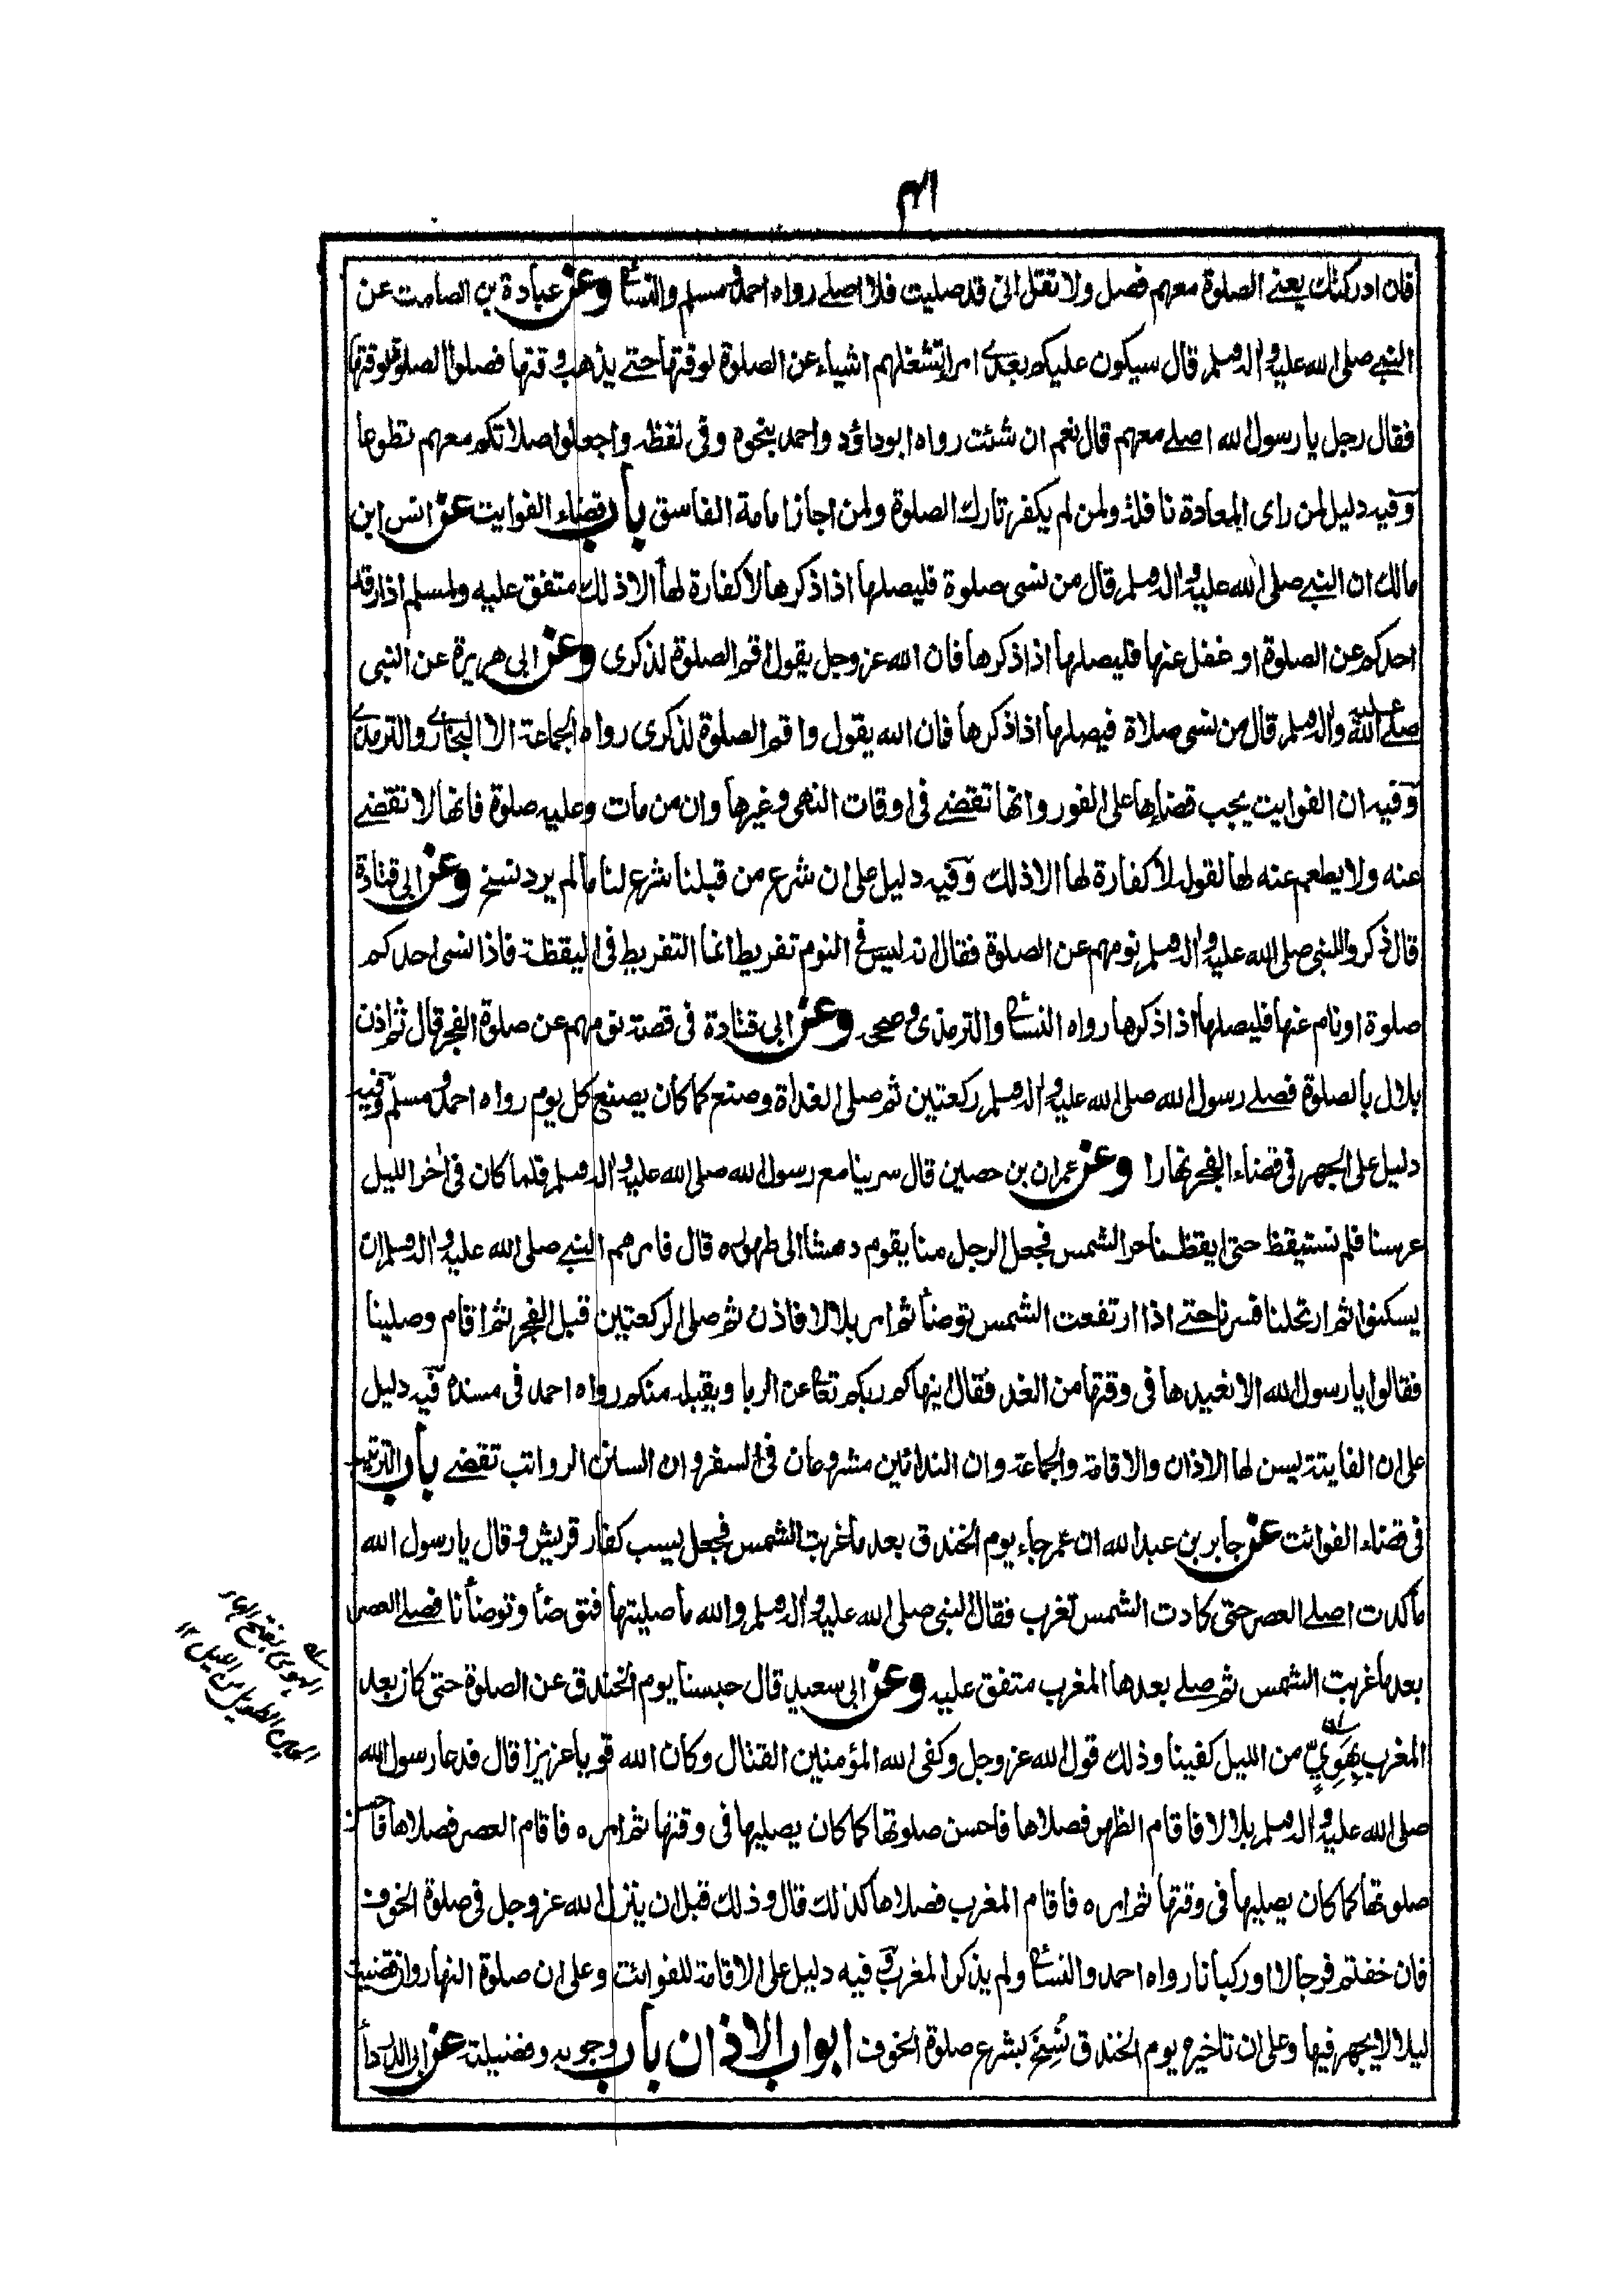 ٤١
فان ادركتك يعنے الصلوة معهم فصل ولا تقل انى قد صليت فلا اصلے رواه احمد ومسلم والنسائ وعن عبادة بن الصامت عن
النبے صلى الله عليه واله وسلم قال سيكون عليكم بعدے امراء تشغلهم اشياء عن الصلوة لوقتها حتے يذهب وقتها فصلوا الصلوة لوقتها
فقال رجل يا رسول الله اصلے معهم قال نعم ان شئت رواه ابو داؤد واحمد بنحوه وفى لفظه واجعلوا صلاتكم معهم تطوعا
وفيه دليل لمن راى المعادة نافلة ولمن لم يكفر تارك الصلوة ولمن اجاز امامة الفاسق باب قضاء الفوايت عن انس ابن
مالك ان النبے صلى الله عليه واله وسلم قال من نسى صلوة فليصلها اذا ذكرها لا كفارة لها الا ذلك متفق عليه ولمسلم اذا رقد
احدكم عن الصلوة او غفل عنها فليصلها اذا ذكرها فان الله عز وجل يقول اقم الصلوة لذكرى وعن ابى هريرة عن النبى
صلے الله عليه واله وسلم قال من نسى صلاة فيصلها اذا ذكرها فان الله يقول واقم الصلوة لذكرى رواه الجماعة الا البخارے والترمذے
وفيه ان الفوايت يجب قضاءها على الفور وانها تقضے فى اوقات النهى وغيرها وان من مات وعليه صلوة فانها لا تقضے
عنه ولا يطعم عنه لها لقوله لا كفارة لها الا ذلك وفيه دليل على ان شرع من قبلنا شرع لنا ما لم يرد نسخ وعن ابى قتادة
قال ذكروا للنبى صلى الله عليه واله وسلم نومهم عن الصلوة فقال انه ليس فے النوم تفريط انما التفريط فى اليقظة فاذا نسى احدكم
صلوة او نام عنها فليصلها اذا ذكرها رواه النسائ والترمذى وصححه وعن ابى قتادة فى قصة نومهم عن صلوة الفجر قال ثم اذن
بلال بالصلوة فصلے رسول الله صلى الله عليه واله وسلم ركعتين ثم صلى الغداة وصنع كما كان يصنع كل يوم رواه احمد ومسلم وفيه
دليل على الجهر فى قضاء الفجر نهارا وعن عمران بن حصين قال سرينا مع رسول الله صلى الله عليه واله وسلم فلما كان فى اخر الليل
عرسنا فلم نستيقظ حتى ايقظنا حر الشمس فجعل الرجل منا يقوم دهشا الى طهوره قال فامرهم النبے صلى الله عليه واله وسلم ان
يسكنوا ثم ارتحلنا فسرنا حتے اذا ارتفعت الشمس توضأ ثم امر بلالا فاذن ثم صلى الركعتين قبل الفجر ثم اقام وصلينا
فقالوا يا رسول الله الا نعيدها فى وقتها من الغد فقال اينهاكم ربكم تعالى عن الربا ويقبله منكم رواه احمد فى مسنده فيه دليل
على ان الفايتة يسن لها الاذان والاقامة والجماعة وان الندائين مشروعان فى السفر وان السنن الرواتب تقضے باب الترتيب
فى قضاء الفوائت عن جابر بن عبد الله ان عمر جاء يوم الخندق بعد ما غربت الشمس فجعل يسب كفار قريش وقال يا رسول الله
ما كدت اصلے العصر حتى كادت الشمس تغرب فقال النبى صلى الله عليه واله وسلم والله ما صليتها فتوضأ وتوضأنا فصلے العصر
بعد ما غربت الشمس ثم صلے بعدها المغرب متفق عليه وعن ابى سعيد قال حبسنا يوم الخندق عن الصلوة حتى كان بعد
المغرب بِهَوِيٍّ من الليل كفينا وذلك قول الله عز وجل وكفى الله المؤمنين القتال وكان الله قويا عزيزا قال فدعا رسول الله
صلى الله عليه واله وسلم بلالا فاقام الظهر فصلاها فاحسن صلوتها كما كان يصليها فى وقتها ثم امره فاقام العصر فصلاها فاحسن
صلوتها كما كان يصليها فى وقتها ثم امره فاقام المغرب فصلاها كذلك قال وذلك قبل ان ينزل الله عز وجل فى صلوة الخوف
فان خفتم فرجالا او ركبانا رواه احمد والنسائ ولم يذكر المغرب وفيه دليل على الاقامة للفوائت وعلى ان صلوة النهار وان قضيت
ليلا لا يجهر فيها وعلى ان تاخيره يوم الخندق نُسِخَ بشرع صلوة الخوف ابواب الاذان باب وجوبه وفضيلته عن ابى الدرداء
الهوى بفتح الهاء
الحين الطويل من الليل ١٢